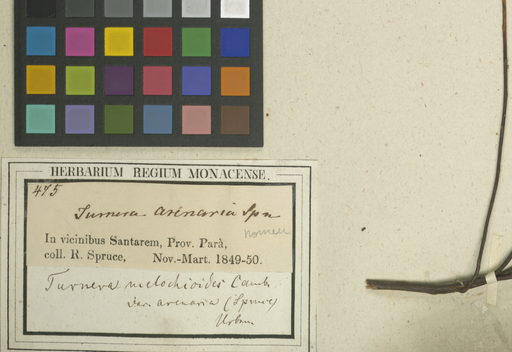 HERBARIUM REGIUM MONACENSE.
475
Turnera arenaria Spru
nomen
In vicinibus Santarem, Prov. Parà,
coll. R. Spruce, Nov.-Mart. 1849-50.
Turnera melochioides Camb.
var. arenaria (Spruce)
Urban